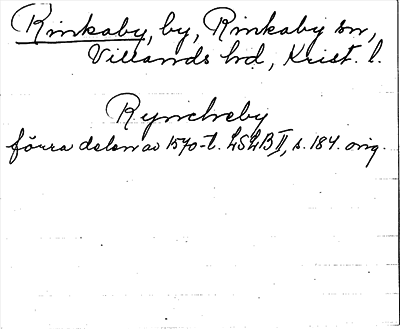 Rinkaby, by, Rinkaby sn,
Villands hd, Krist. l.
Rynckeby
förra delen av 1570-t. LSLB II, s. 184. orig.